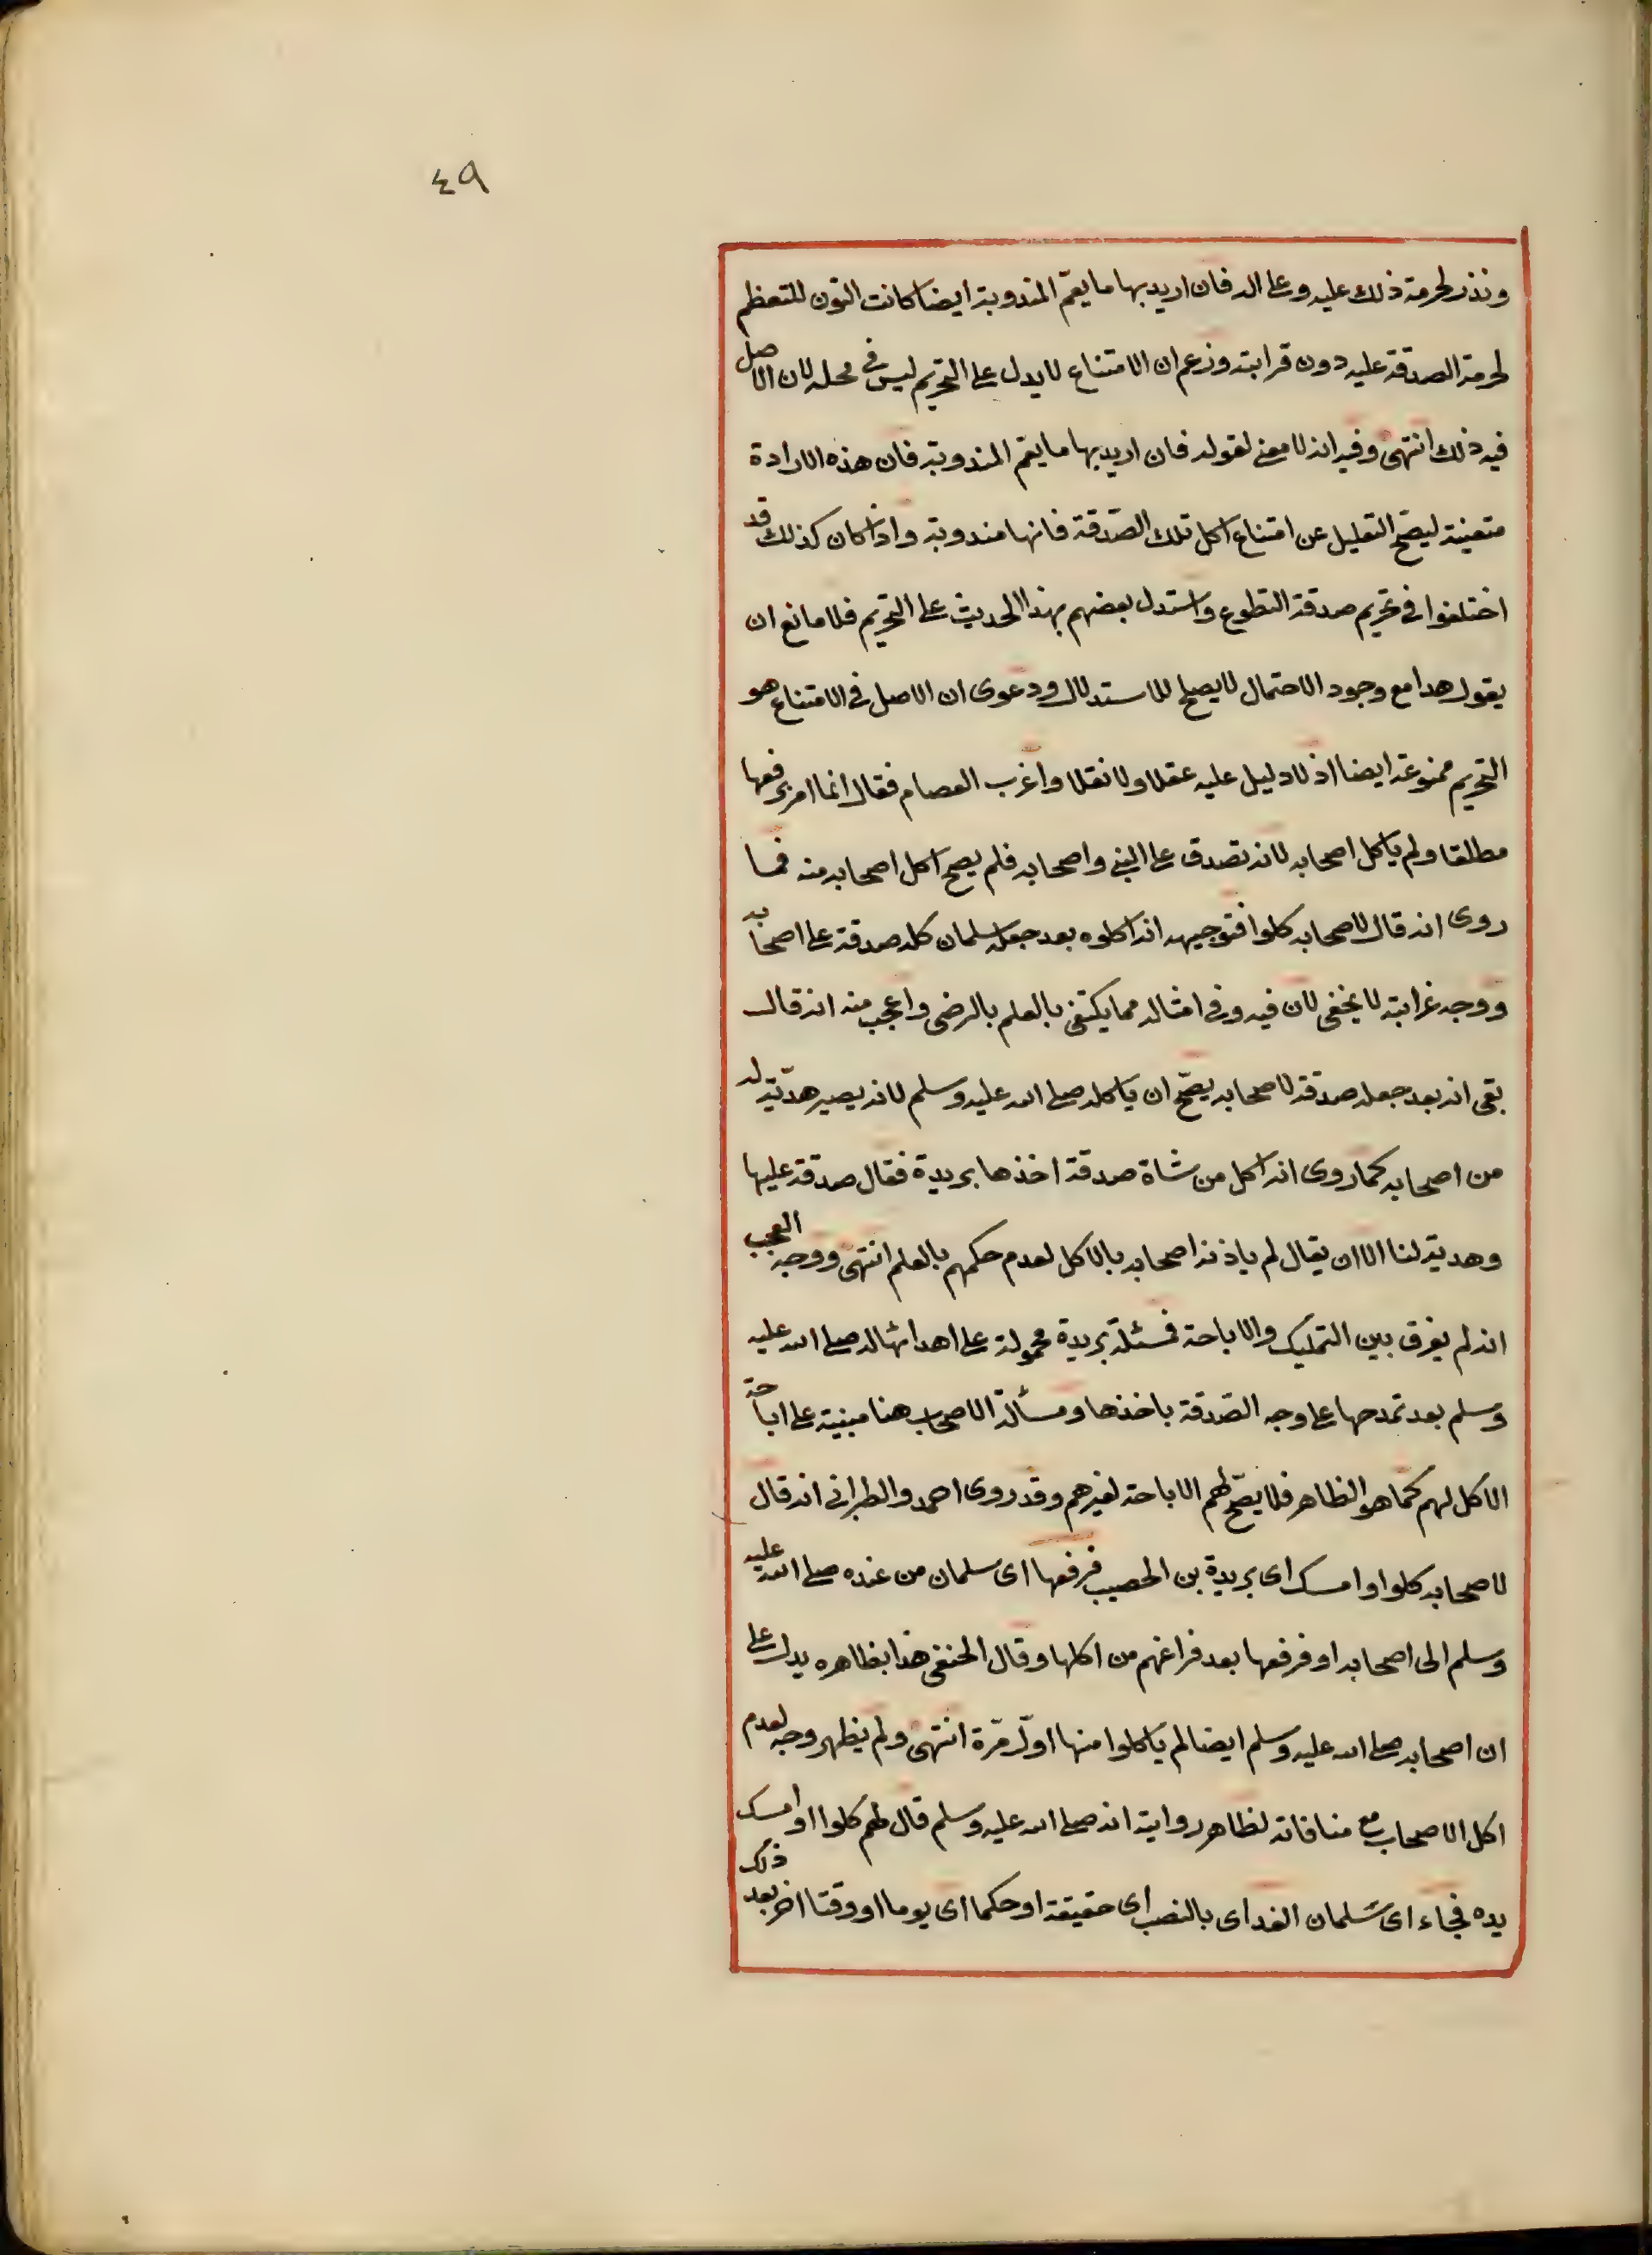 ٤٩
ونذر لحرمة ذلك عليه وعلى اله فان اريد بها ما يعمّ المندوبة ايضا كانت النون للتعظيم
لحرمة الصدقة عليه دون قرابته وزعم ان الامتناع لا يدل على التحريم ليس في محله لان الاصل
فيه ذلك انتهى وفيه انه لا معنى لقوله فان اريد بها ما يعّم المندوبة فان هذه الارادة
متعينة ليصحّ التعليل عن امتناع اكل تلك الصّدقة فانها مندوبة واذا كان كذلك قد
اختلفوا في تحريم صدقة التطوع واستدل بعضهم بهذا الحديث على التحريم فلا مانع ان
يقول هذا مع وجود الاحتمال لا يصلح للاستدلال ودعوى ان الاصل في الامتناع هو
التحريم ممنوعة ايضا اذ لا دليل عليه عقلا ولا نقلا واغرب العصام فقال انما امر برفعها
مطلقا ولم ياكل اصحابه لانه تصدق على النبي واصحابه فلم يصح اكل اصحابه منه فما
روى انه قال لاصحابه كلوا فتوجيهه انه اكلوه بعد جعل سلمان كله صدقة على اصحابه
ووجه غرابته لا يخفى لان فيه وفي امثاله مما يكتفى بالعلم بالرضى واعجب منه انه قال
بقى انه بعد جعله صدقة لاصحابه يصحّ ان ياكله صلى الله عليه وسلم لانه يصير هديّة له
من اصحابه كما روى انه اكل من شاة صدقة اخذها بريدة فقال صدقة عليها
وهدية لنا الا ان يقال لم ياذنه اصحابه بالاكل لعدم حكمهم بالعلم انتهى ووجه العجب
انه لم يفرق بين التمليك والاباحة فمسئلة بريدة محمولة على اهدائها له صلى الله عليه
وسلم بعد تمدحها على وجه الصّدقة باخذها ومسألة الاصحاب هنا مبنية على اباحة
الاكل لهم كما هو الظاهر فلا يصحّ لهم الاباحة لغيرهم وقد روى احمد والطبراني انه قال
لاصحابه كلوا وامسك اى بريدة بن الحصيب فرفعها اى سلمان من عنده صلى الله عليه
وسلم الى اصحابه او فرفعها بعد فراغهم من اكلها وقال الحنفى هذا بظاهره يدل على
ان اصحابه صلى الله عليه وسلم ايضا لم ياكلوا منها اوّل مرّة انتهى ولم يظهر وجه لعدم
اكل الاصحاب مع منافاته لظاهر رواية انه صلى الله عليه وسلم قال لهم كلوا او امسك
يده فجاء اى سلمان الغد اى بالنصب اى حقيقة او حكما اى يوما او وقتا اخر بعد ذلك